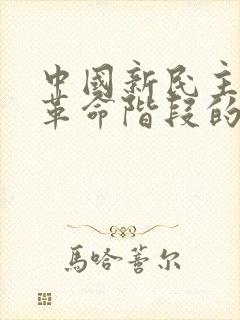 中國新民主
革命階段的
馬哈蓄尔